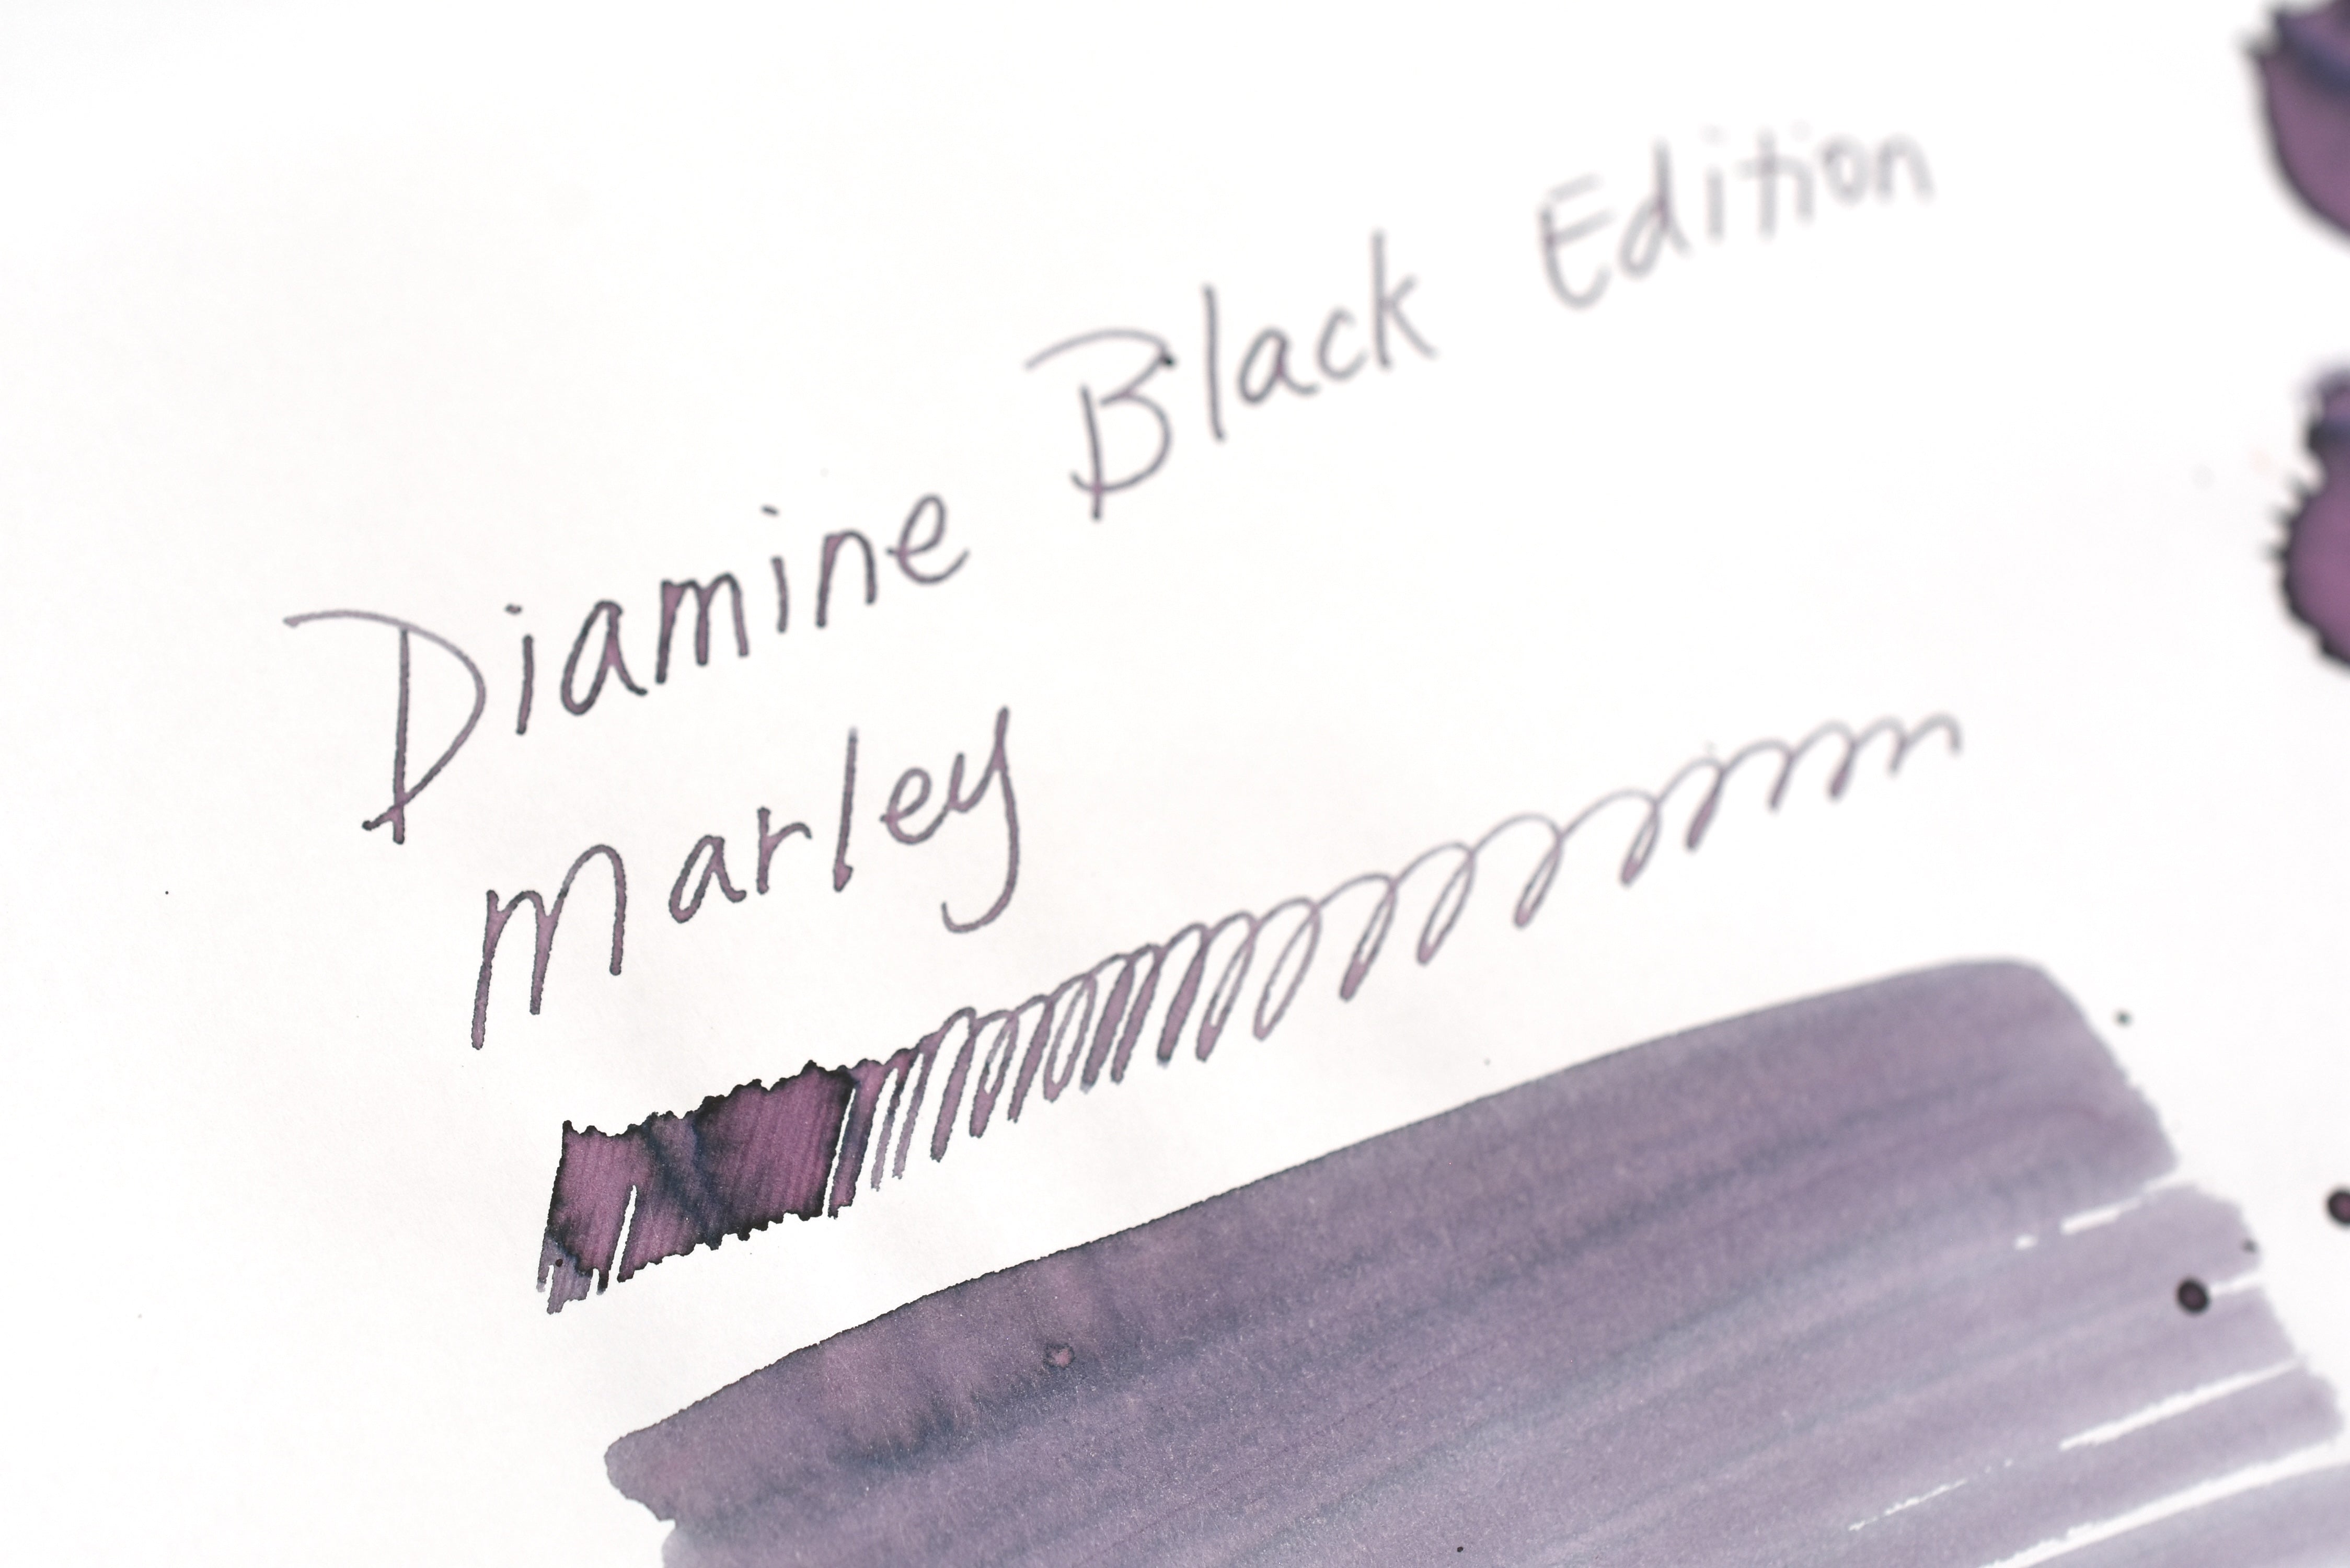 Diamine Black Edition
Marley